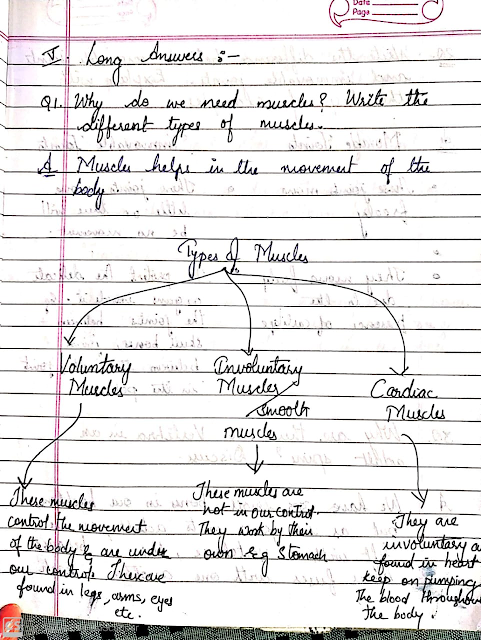 Date
Page
V. Long Answers :-
Q1. Why do we need muscles? Write the
different types of muscles.
A Muscles helps in the movement of the
body
Types of Muscles
Voluntary
Muscles
Involuntary
Muscles /
smooth
muscles
Cardiac
Muscles
These muscles
control the movement
of the body & are under
our control. These are
found in legs, arms, eyes
etc.
These muscles are
not in our control.
They work by their
own e.g stomach
They are
involuntary a
found in heart
keep on pumping
the blood throughou
the body.